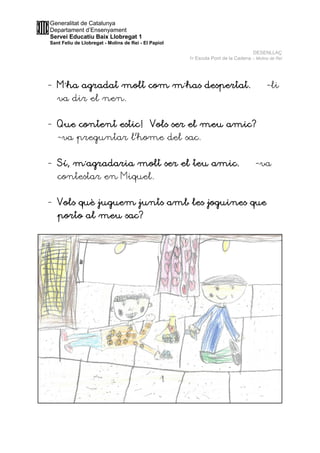 Generalitat de Catalunya
Departament d'Ensenyament
Servei Educatiu Baix Llobregat 1
Sant Feliu de Llobregat - Molins de Rei - El Papiol
DESENLLAÇ
1r Escola Pont de la Cadena - Molins de Rei
- M'ha agradat molt com m'has despertat. -li
va dir el nen.
- Que content estic! Vols ser el meu amic?
-va preguntar l'home del sac.
- Sí, m'agradaria molt ser el teu amic. -va
contestar en Miquel.
- Vols què juguem junts amb les joguines que
porto al meu sac?